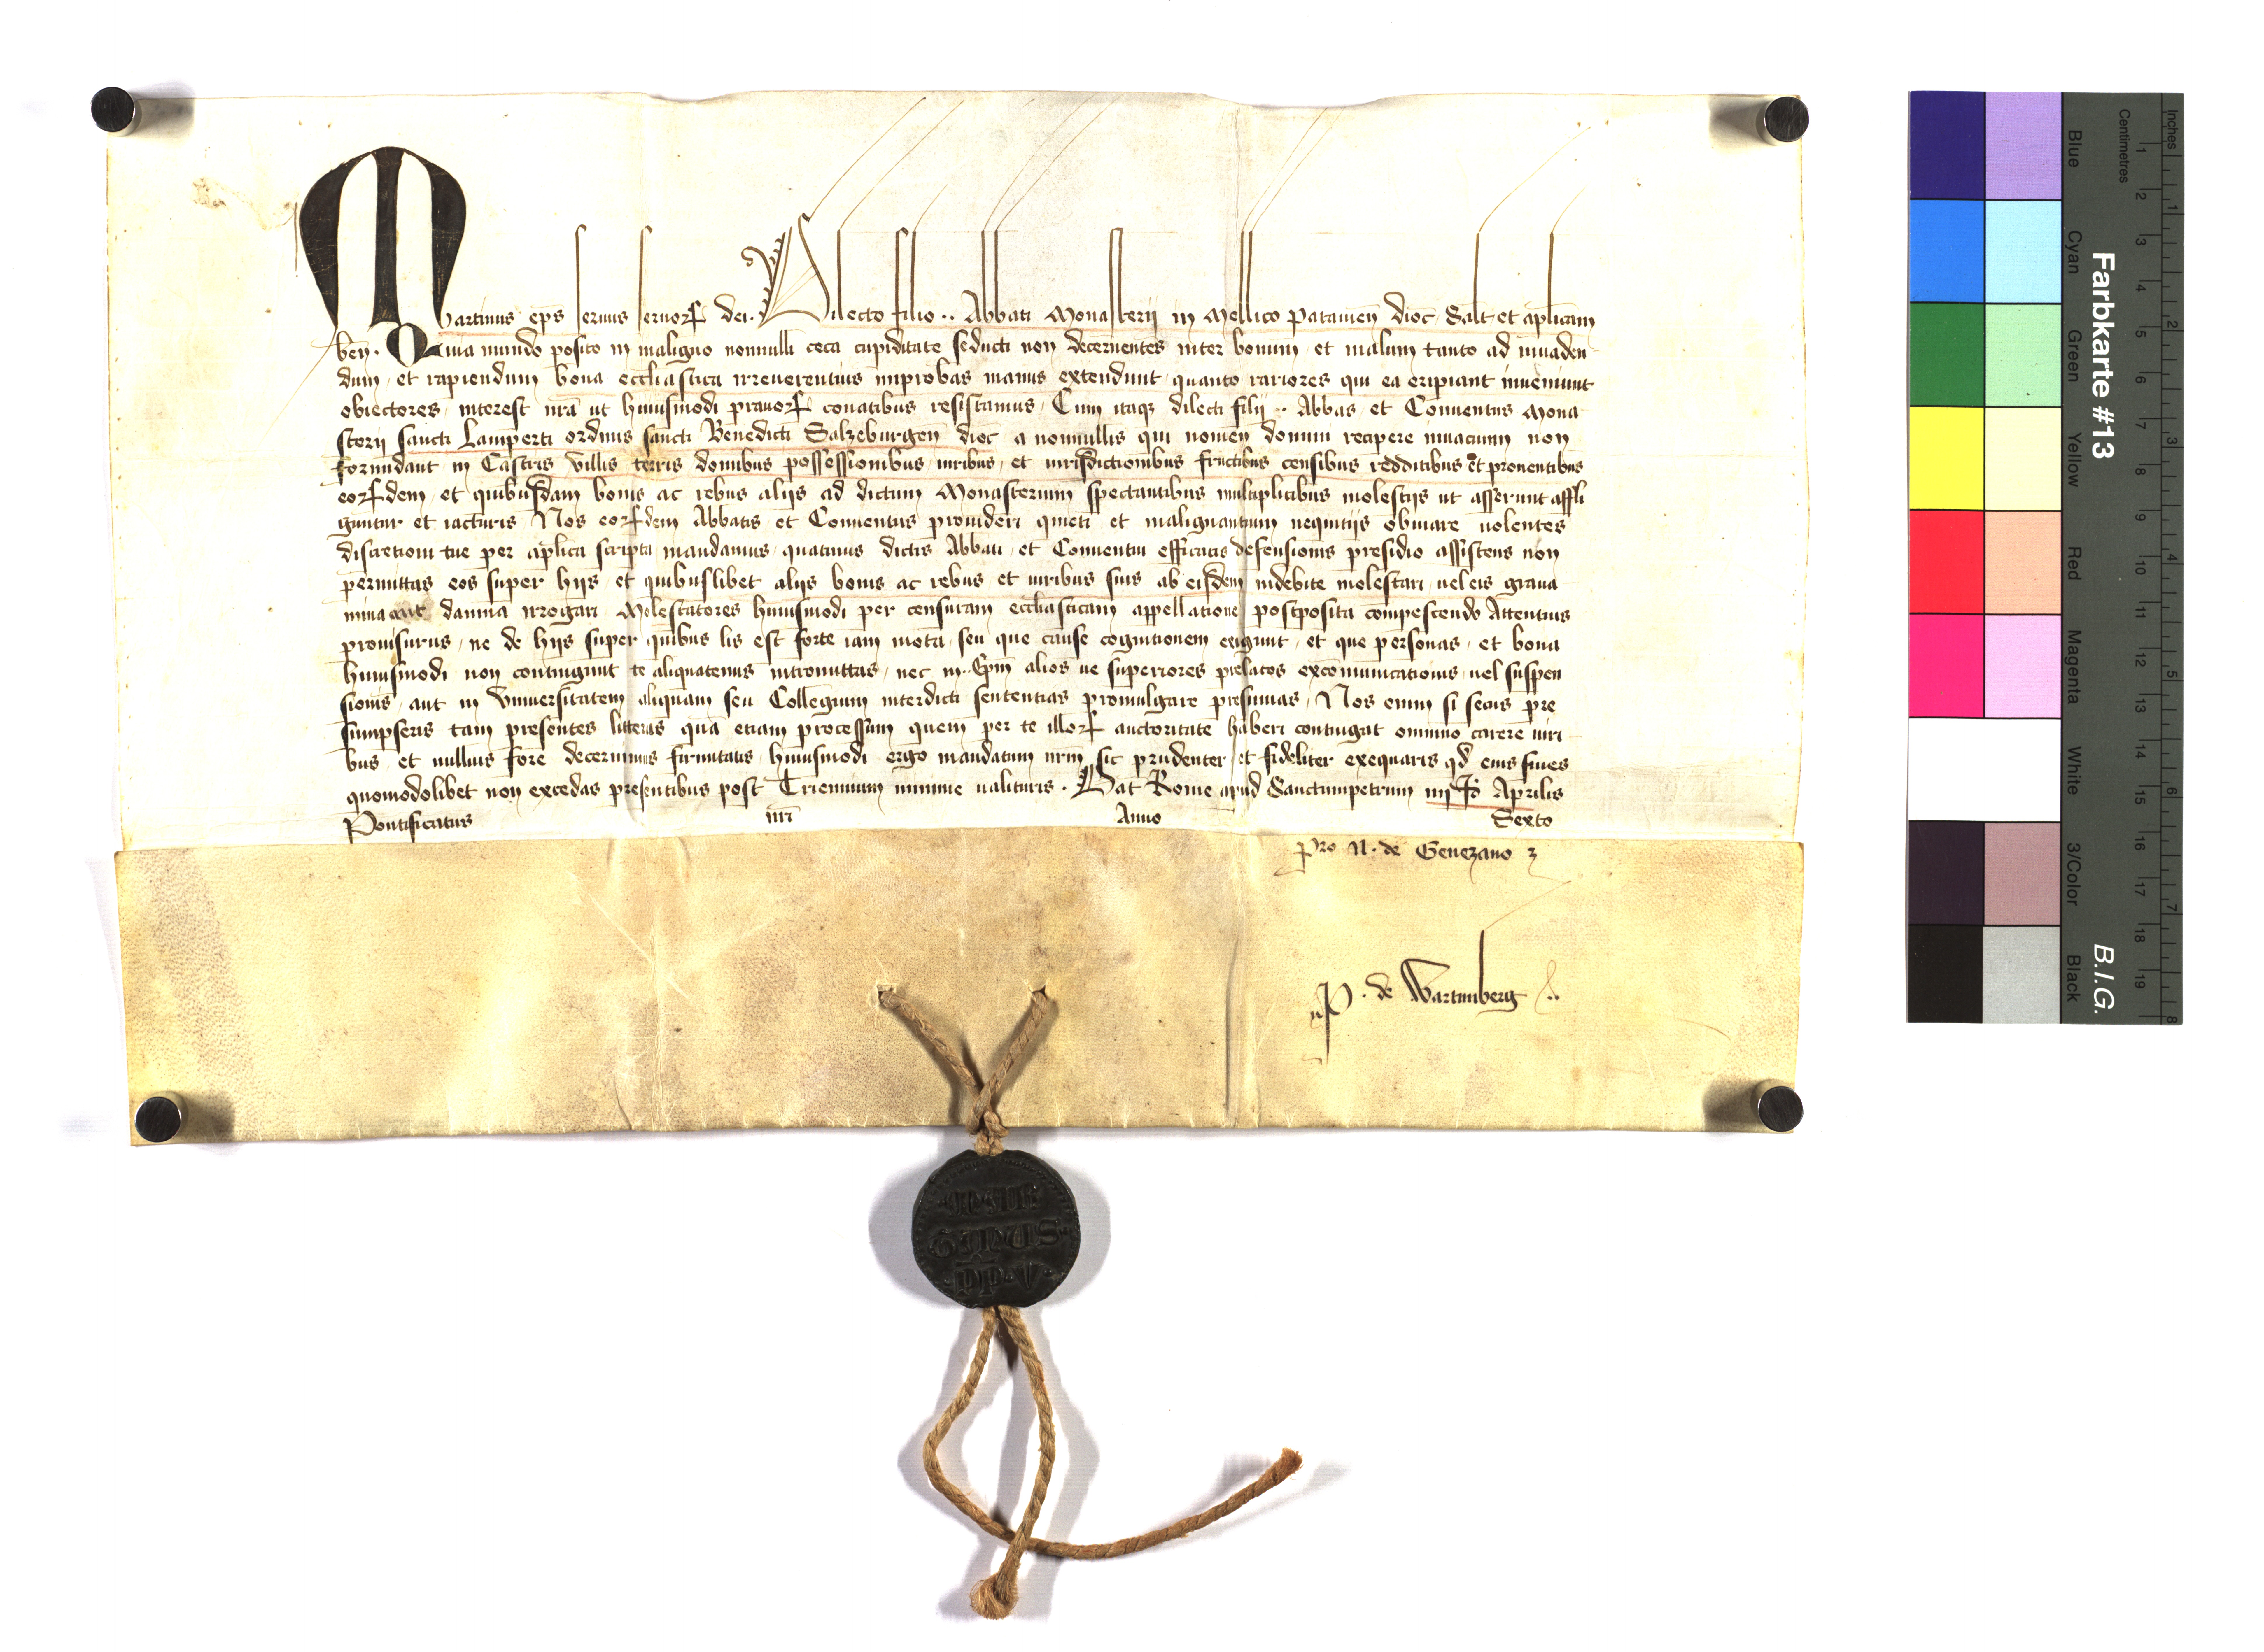 Martinus ep̄s seruus seruoꝝ dei. Dilecto filio .. Abbati Monasterii in Mellico Patauien̄ dioc̄ Salt̄ et aplicam
ben̄. Quia mundo posito in maligno nonnulli ceca cupiditate seducti non decernentes inter bonum et malum tanto ad inuaden
dum et rapiendum bona ecclīastica irreuerentius improbas manus extendunt quanto rariores qui ea eripiant inueniunt
obiectores, interest nrā ut huiusmodi prauoꝝ conatibus resistamus, Cum itaqꝫ dilecti filii .. Abbas et Conuentus Mona
sterii sancti Lamperti ordinis sancti Benedicti Salzeburgen̄ dioc̄ a nonnullis qui nomen domini recipere inuacuum non
formidant in Castris Villis terris domibus possessionibus iuribus et iurisdictionibus fructibus censibus redditibus et prouentibus
eoꝝdem et quibusdam bonis ac rebus alijs ad dictum Monasterium spectantibus multiplicibus molestijs ut asserunt affli
guntur et iacturis Nos eoꝝdem Abbatis et Conuentus prouideri quieti et malignantium nequitijs obuiare uolentes
discretioni tue per aplica scripta mandamus, quatinus dictis Abbati et Conuentui efficacis defensionis presidio assistens non
permittas eos super hijs et quibuslibet alijs bonis ac rebus et iuribus suis ab eisdem indebite molestari, uel eis graua
mina aut damna irrogari Molestatores huiusmodi per censuram ecclīasticam appellatione postposita compescendo Attentius
prouisurus, ne de hijs super quibus lis est forte iam mota, seu que cause cognitionem exigunt, et que personas, et bona
huiusmodi non contingunt te aliquatenus intromittas, nec in .. Epm̄ alios ue superiores prelatos excomunicationis, uel suspen
sionis, aut in Vniuersitatem aliquam seu Collegium interdicti sententias promulgare presumas, Nos enim si secus pre
sumpseris tam presentes litteras quā etiam processum quem per te illoꝝ auctoritate haberi contingat omnino carere uiri
bus, et nullius fore decernimus firmitatis, huiusmodi ergo mandatum nrm̄ sic prudenter et fideliter exequaris qd̄ eius fines
quomodolibet non excedas presentibus post Triennium minime ualituris. Dat̄ Rome apud Sanctumpetrum iiij Kl̄ Aprilis
Pontificatus nr̄i Anno Sexto
pro N. de Genezano
P. de Wartenberg
MAR
TINUS
PP V
Farbkarte #13
B.I.G.
Inches
Centimetres
1 2 3 4 5 6 7 8 9 10 11 12 13 14 15 16 17 18 19
1 2 3 4 5 6 7 8
Blue Cyan Green Yellow Red Magenta White 3/Color Black